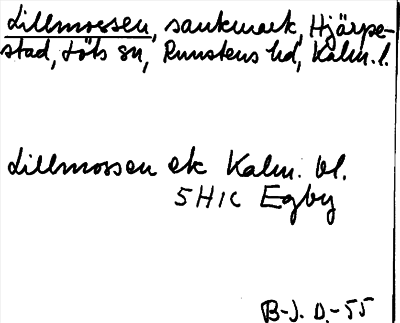 Lillmossen, sankmark, Hjärpe-
stad, Löts sn, Runstens hd, Kalm. l.
Lillmossen ek Kalm. bl.
5H1c Egby
B-J. D.-55